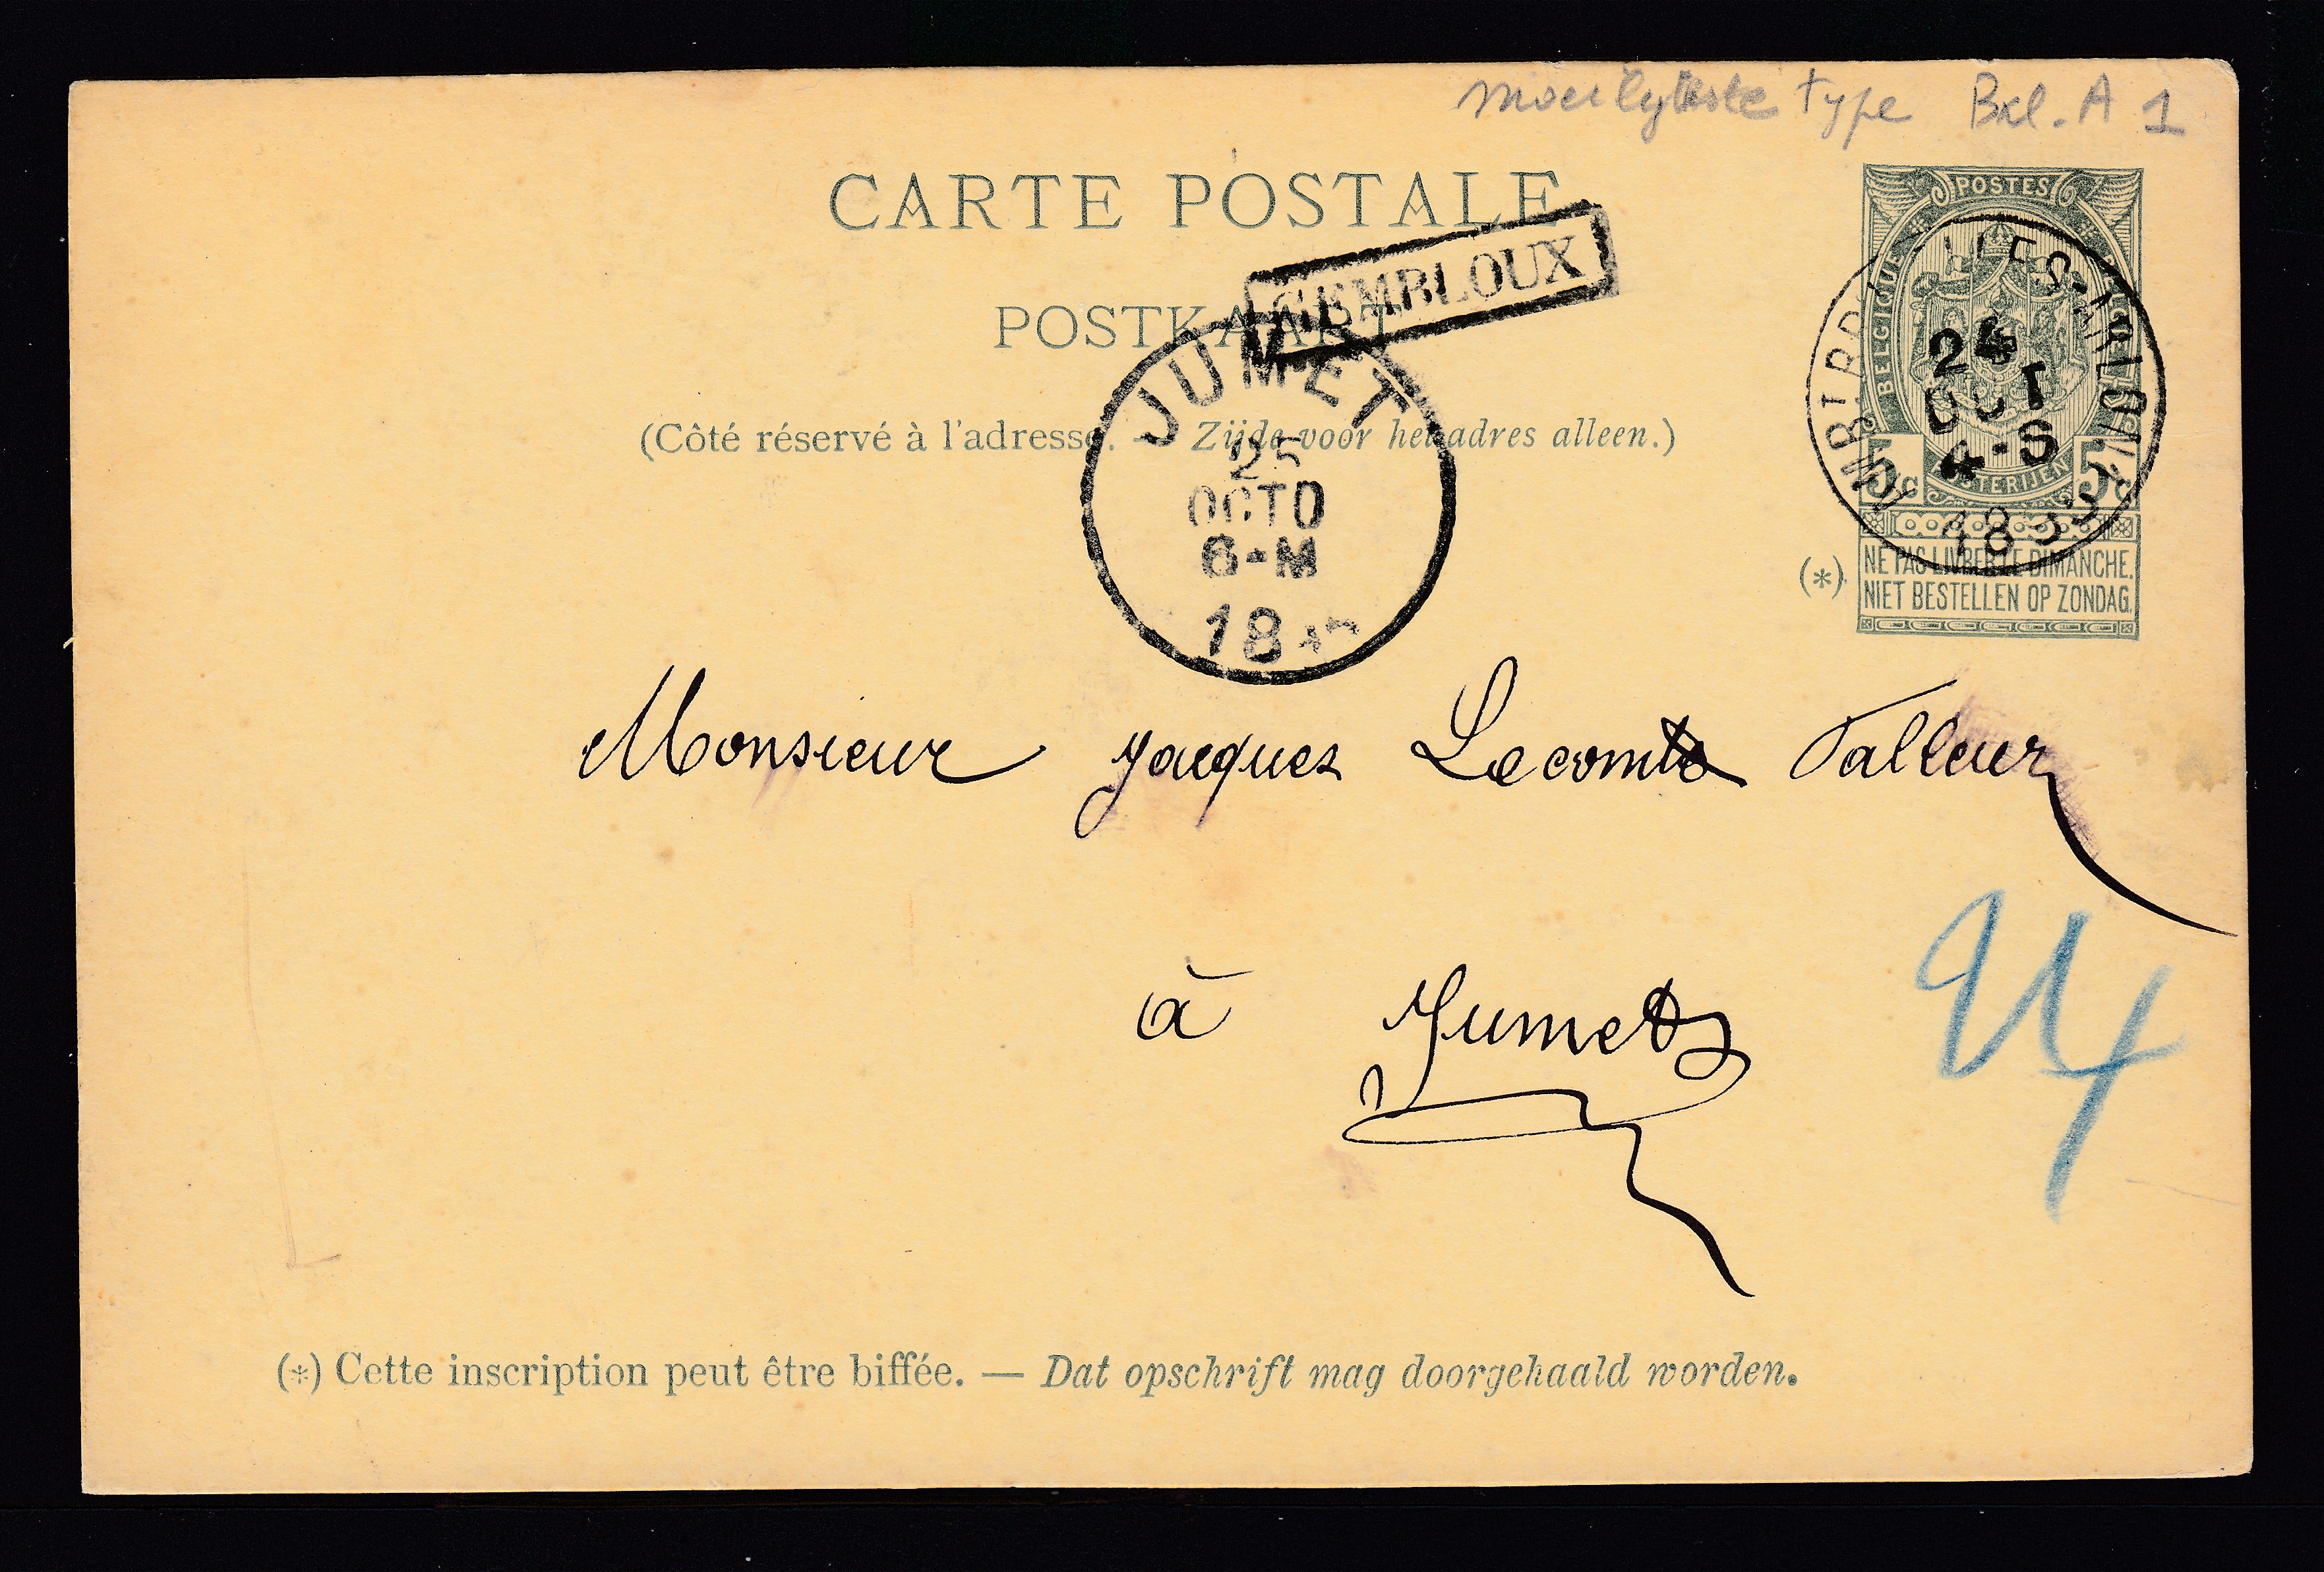 moeilykste type Bxl. A 1
CARTE POSTALE
POSTKAART
GEMBLOUX
(Côté réservé à l'adresse. — Zijde voor het adres alleen.)
JUMET
25
OCTO
6-M
18
POSTES
BELGIQUE
POSTERIJEN
5c 5c
24
OCT
4-S
(*) NE PAS LIVRER LE DIMANCHE.
NIET BESTELLEN OP ZONDAG.
Monsieur Jacques Lecomte Falleur
à Jumet
(*) Cette inscription peut être biffée. — Dat opschrift mag doorgehaald worden.